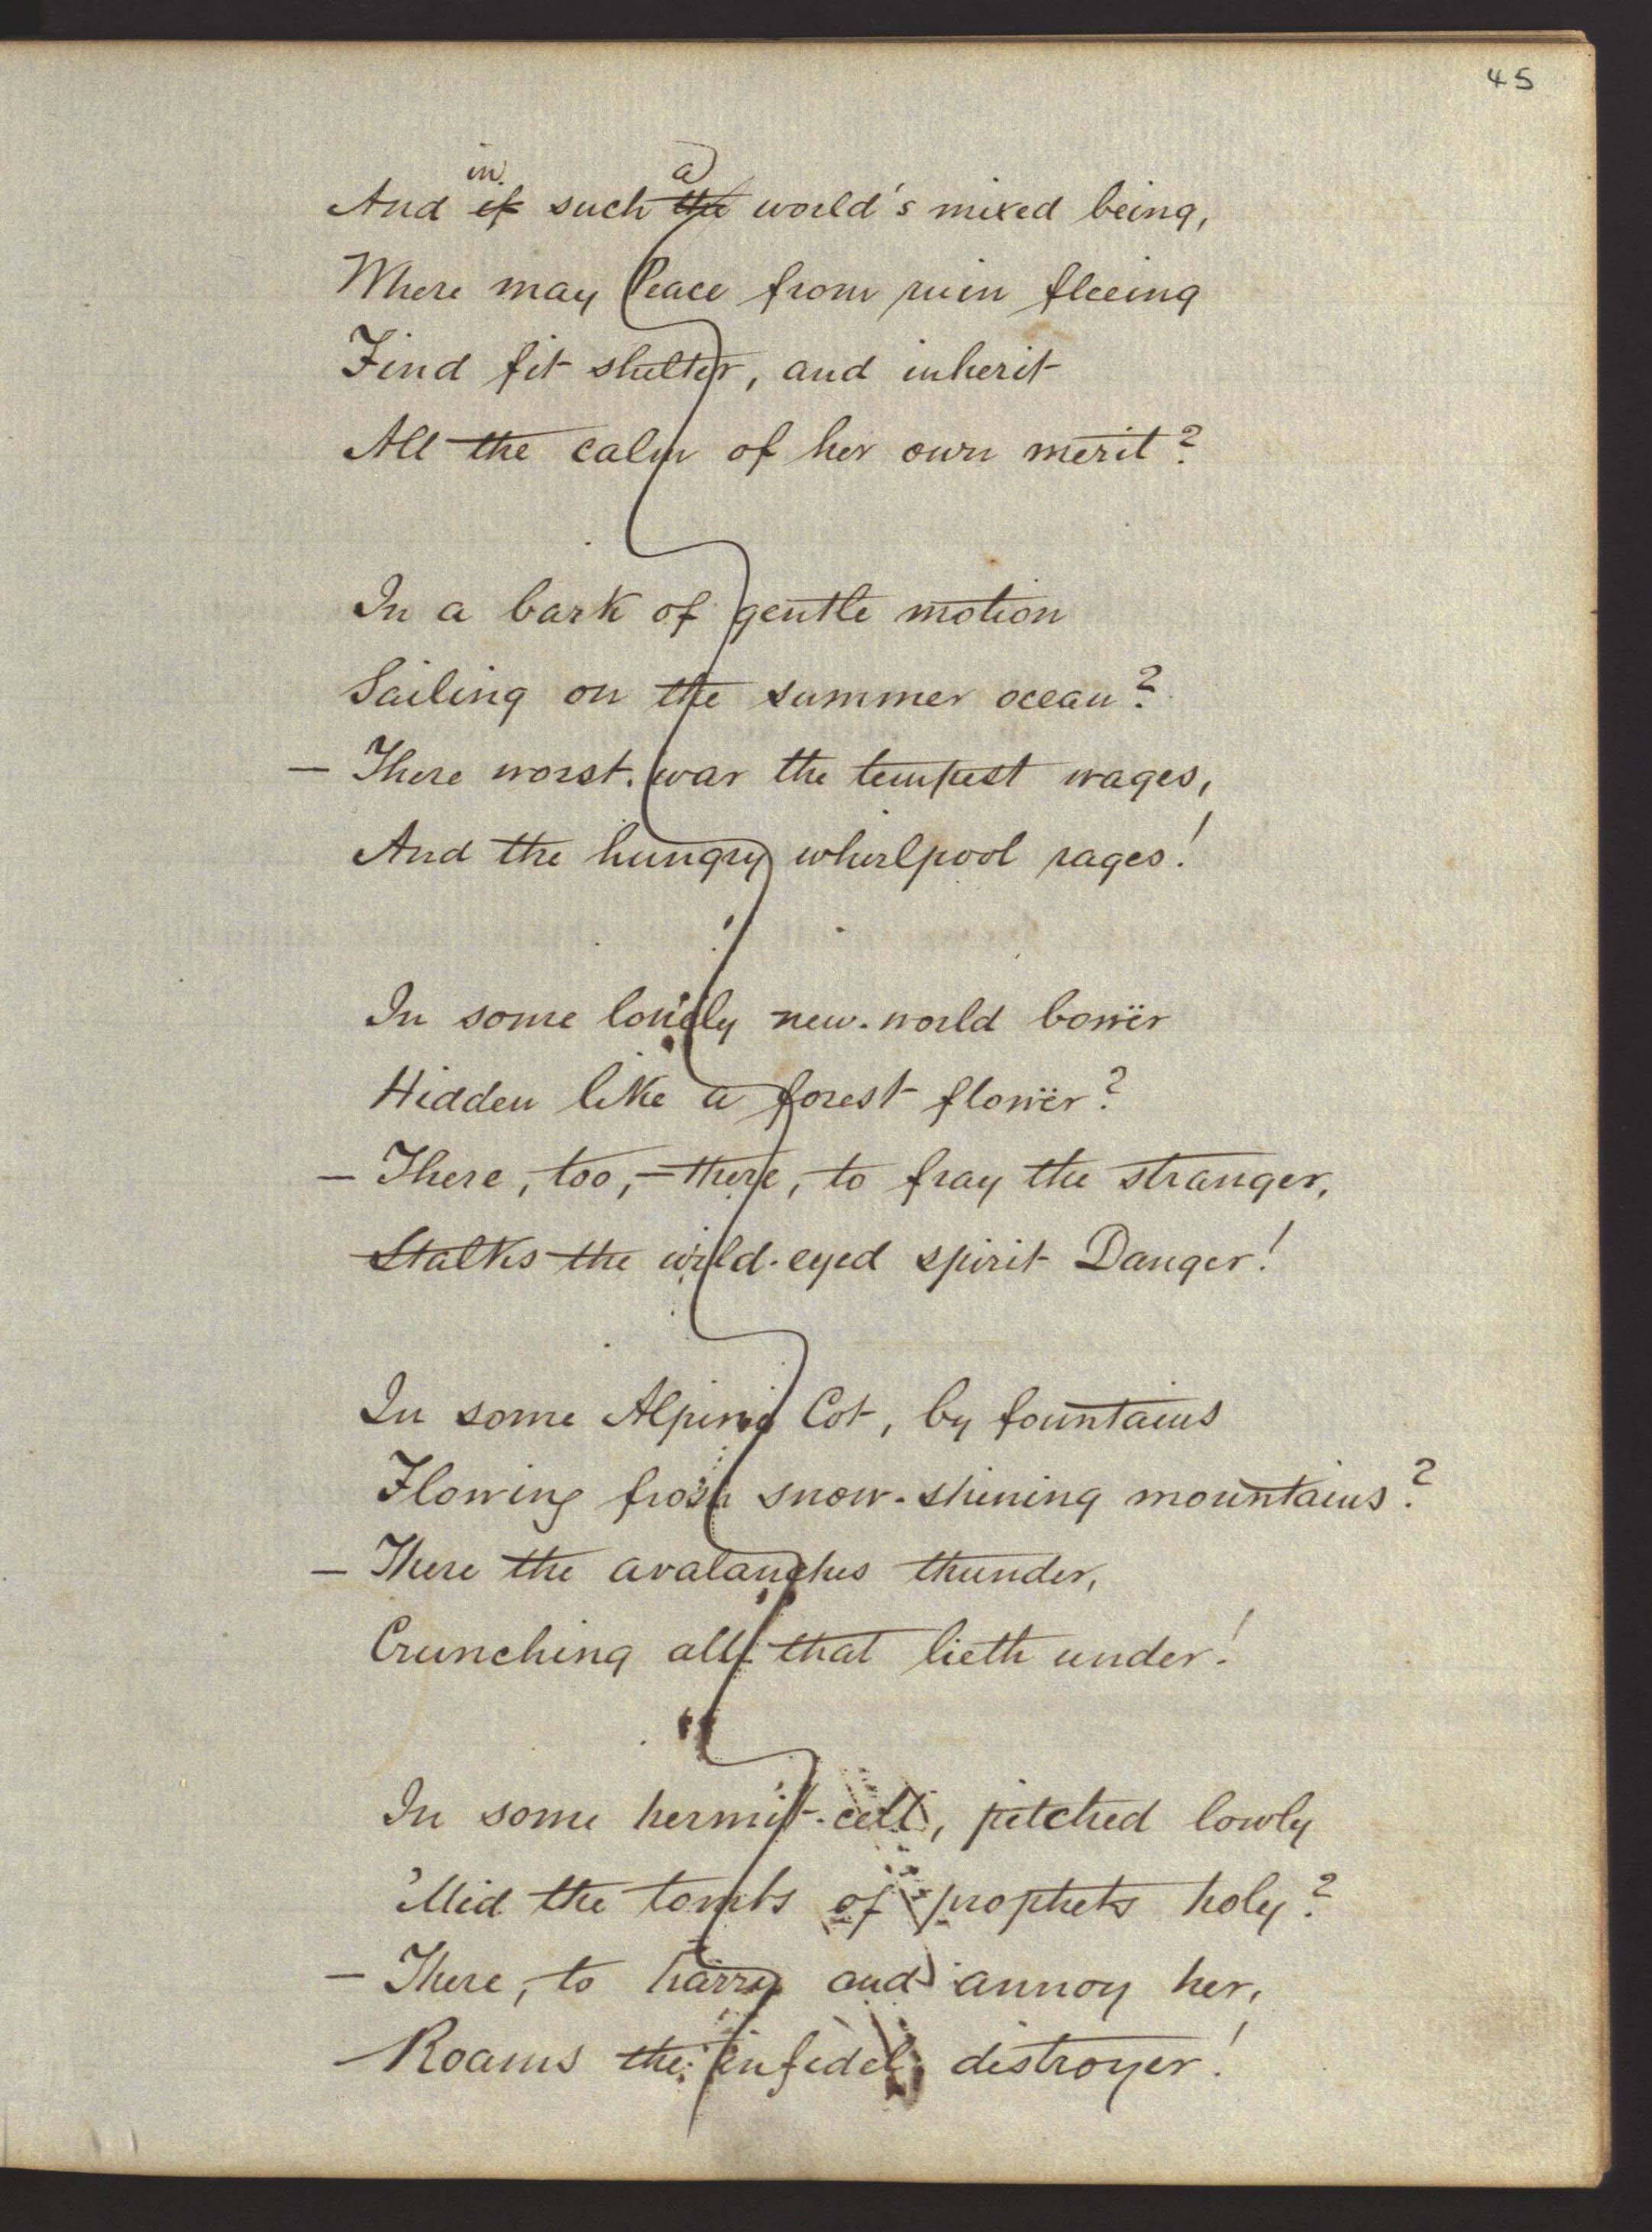 45
And in if such a the world's mixed being,
Where may Peace from ruin fleeing
Find fit shelter, and inherit
All the calm of her own merit?
In a bark of gentle motion
Sailing on the summer ocean?
— There worst war the tempest wages,
And the hungry whirlpool rages!
In some lonely new-world bowër
Hidden like a forest flowër?
— There, too, — there, to fray the stranger,
Stalks the wild-eyed spirit Danger!
In some Alpine Cot, by fountains
Flowing from snow-shining mountains?
— There the avalanches thunder,
Crunching all that lieth under!
In some hermit-cell, pitched lowly
'Mid the tombs of prophets holy?
— There, to harry and annoy her,
Roams the infidel destroyer!